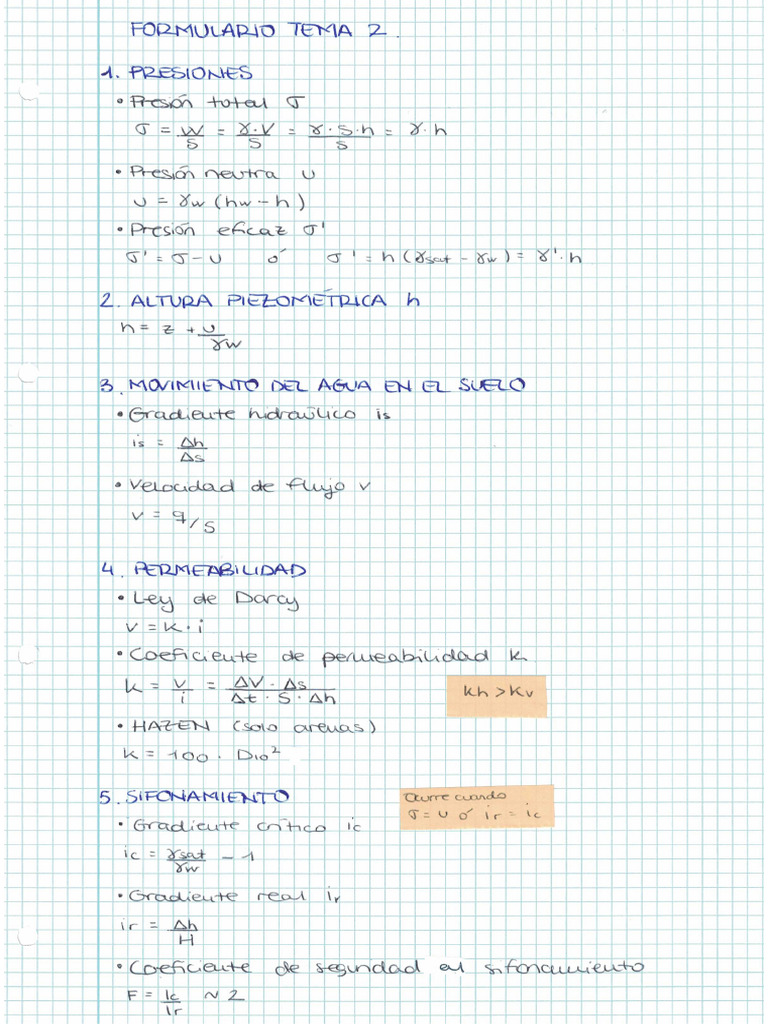 FORMULARIO TEMA 2.
1. PRESIONES
• Presión total σ
σ = W/S = γ·V/S = γ·S·h/S = γ·h
• Presión neutra u
u = γw (hw - h)
• Presión eficaz σ'
σ' = σ - u ó σ' = h (γsat - γw) = γ'·h
2. ALTURA PIEZOMÉTRICA h
h = z + u/γw
3. MOVIMIENTO DEL AGUA EN EL SUELO
• Gradiente hidraúlico is
is = Δh/Δs
• Velocidad de flujo v
v = q/S
4. PERMEABILIDAD
• Ley de Darcy
v = k·i
• Coeficiente de permeabilidad k
k = v/i = ΔV·Δs/Δt·S·Δh
kh > kv
• HAZEN (solo arenas)
k = 100 · D10²
5. SIFONAMIENTO
Ocurre cuando
σ = u ó ir = ic
• Gradiente crítico ic
ic = γsat/γw - 1
• Gradiente real ir
ir = Δh/H
• Coeficiente de seguridad al sifonamiento
F = ic/ir ~ 2